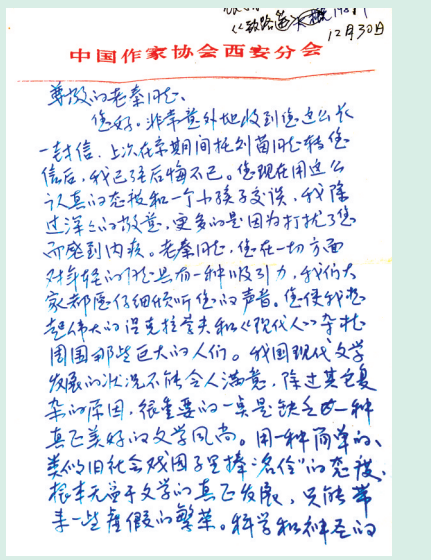 《铁路
12月30日
中国作家协会西安分会
尊敬的老秦同志：
您好。非常意外地收到您这么长
一封信。上次在京期间托刘茵同志转您
信后，我已经后悔不已。您现在用这么
认真的态度和一个小孩子交谈，我除
过深深的敬意，更多的是因为打扰了您
而感到内疚。老秦同志，您在一切方面
对年轻的同志具有一种吸引力，我们大
家都愿仔细倾听您的声音。您使我想
起伟大的涅克拉索夫和《现代人》杂志
周围那些巨大的人们。我国现代文学
发展的状况不能令人满意，除过其它复
杂的原因，很重要的一点是缺乏一种
真正美好的文学风尚。用一种简单的、
类似旧社会戏园子里捧“名伶”的态度，
根本无益于文学的真正发展，只能带
来一些虚假的繁荣。科学和神圣的